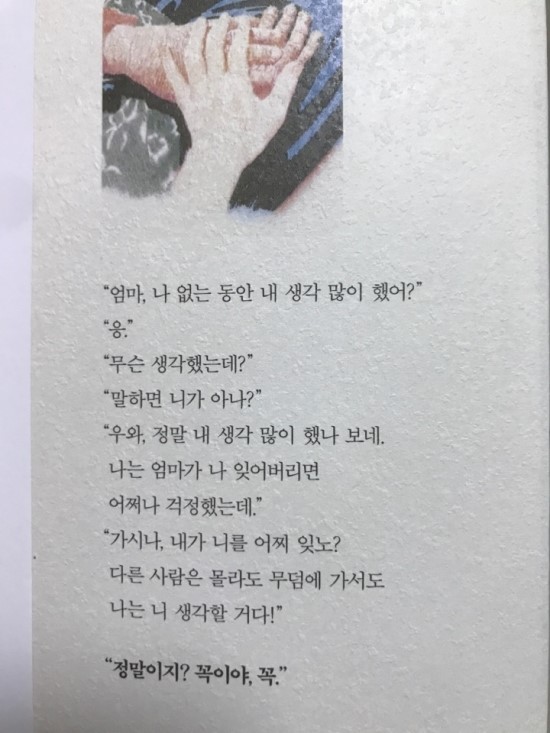 “엄마, 나 없는 동안 내 생각 많이 했어?”
“응.”
“무슨 생각했는데?”
“말하면 니가 아나?”
“우와, 정말 내 생각 많이 했나 보네.
나는 엄마가 나 잊어버리면
어쩌나 걱정했는데.”
“가시나, 내가 니를 어찌 잊노?
다른 사람은 몰라도 무덤에 가서도
나는 니 생각할 거다!”
“정말이지? 꼭이야, 꼭.”